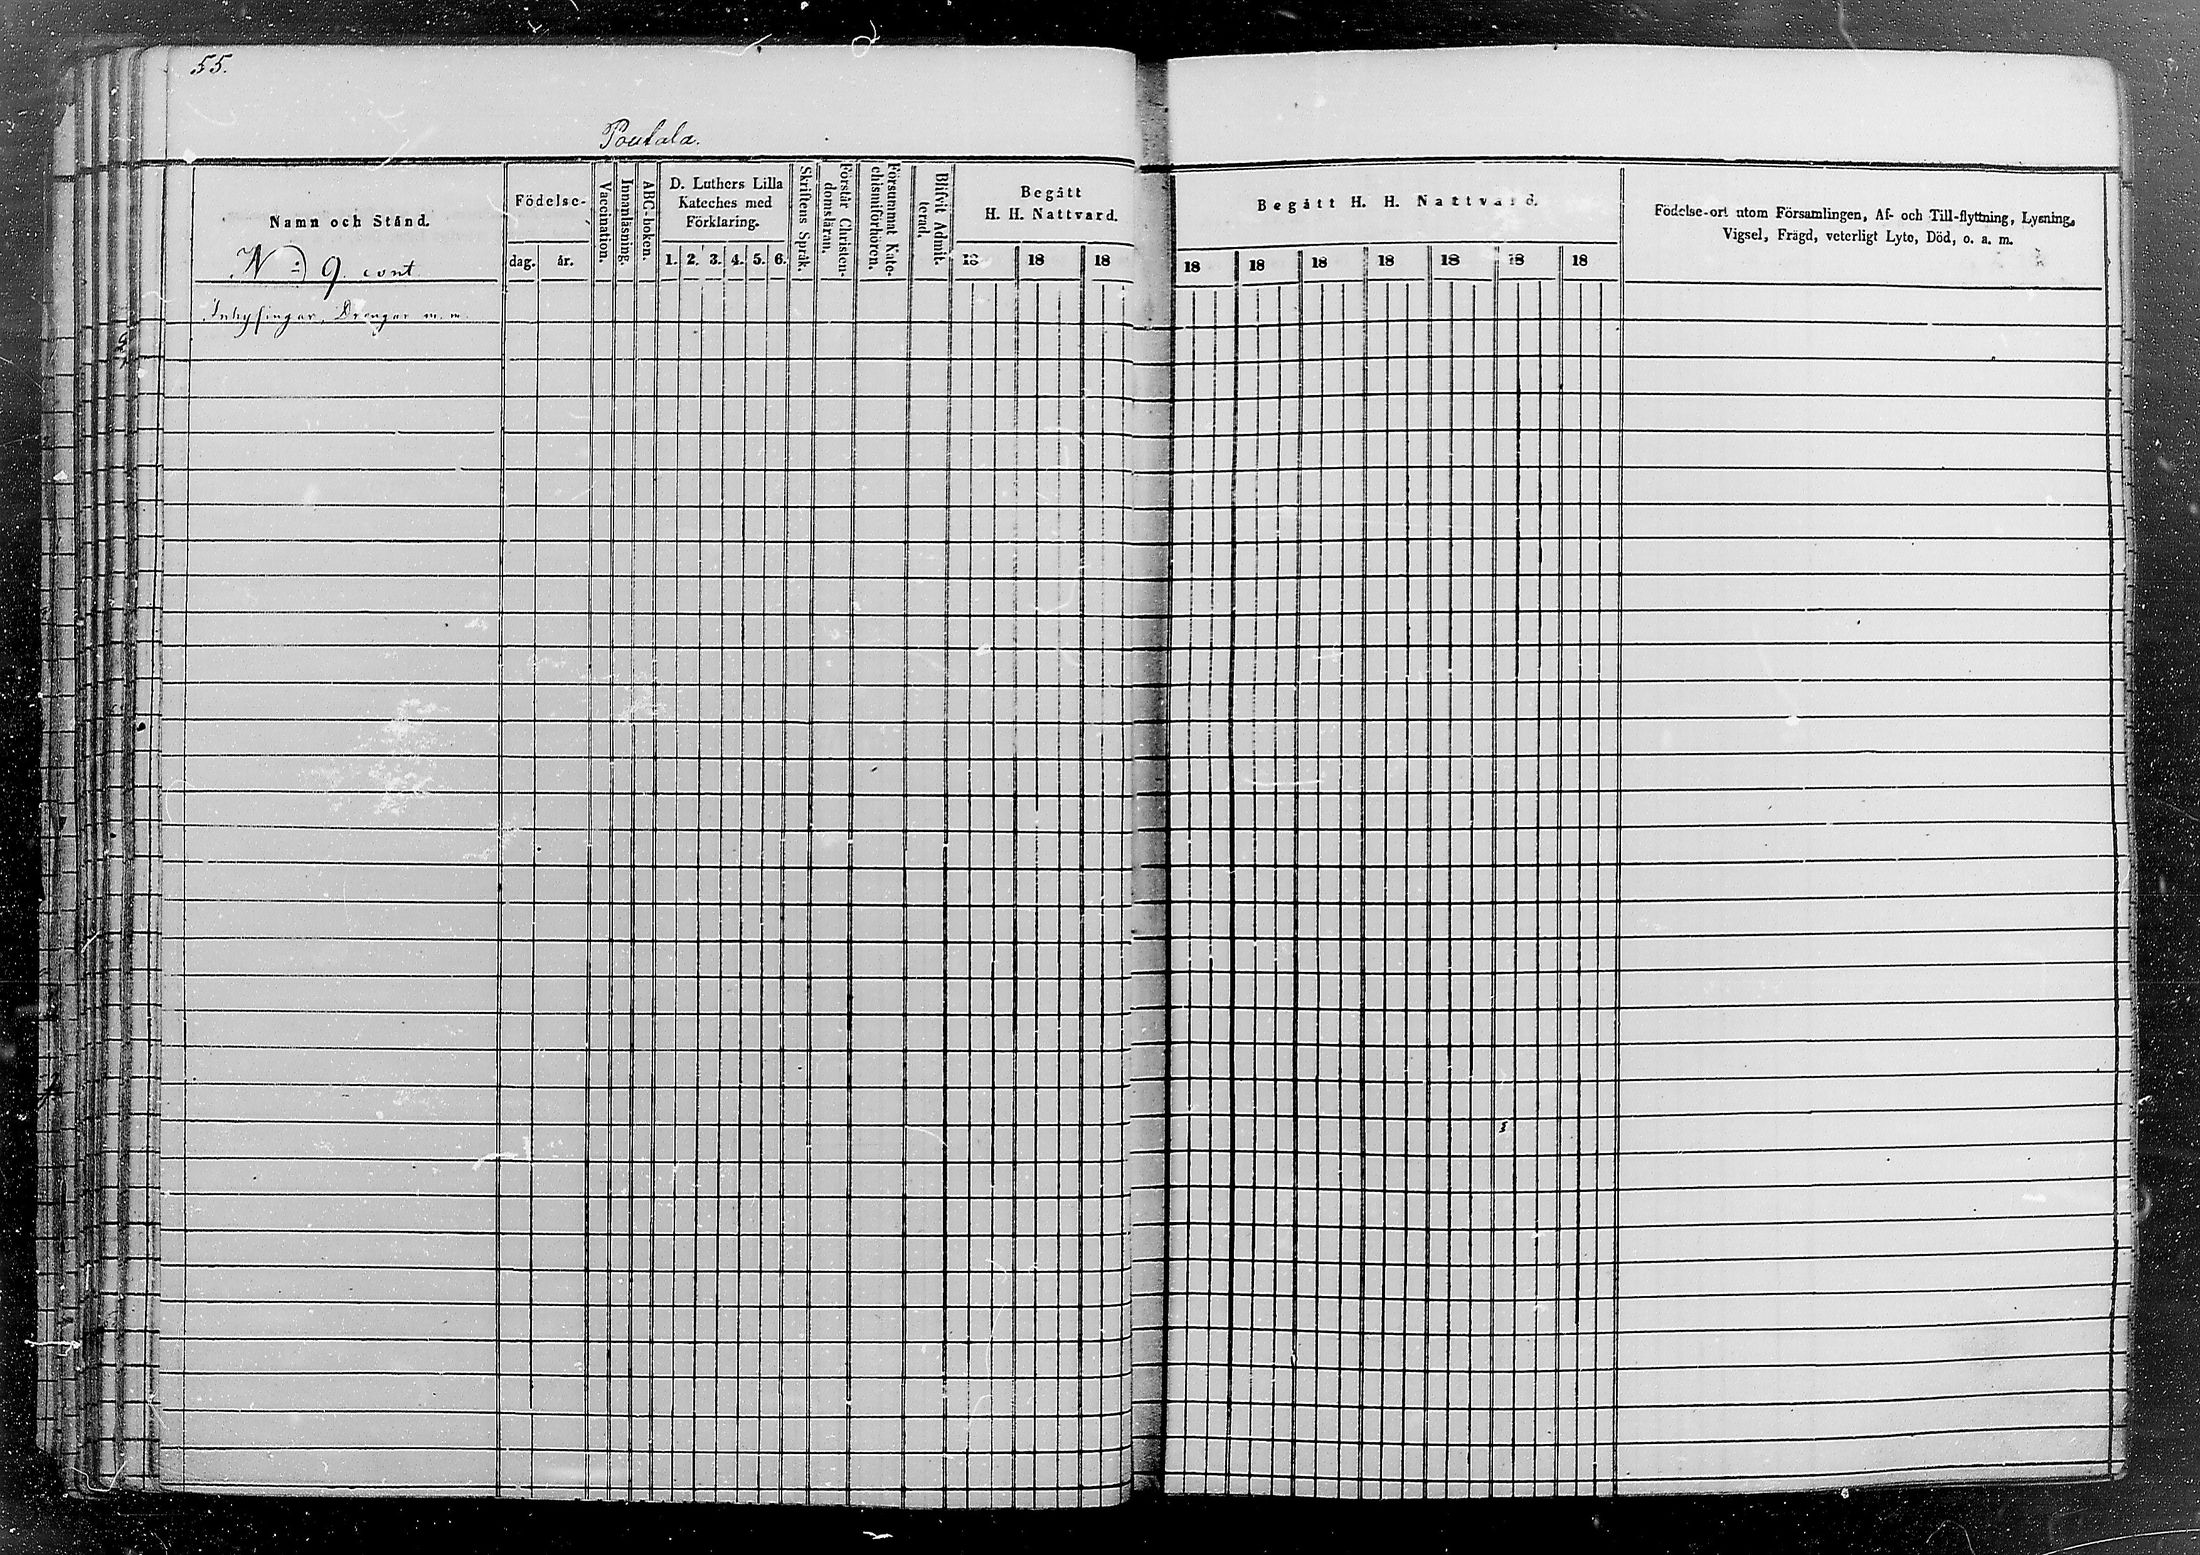 55.
Poutala.
Namn och Stånd.
N:o 9. cont
Födelse-
dag. år.
Vaccination.
Innanläsning.
ABC-boken.
D. Luthers Lilla
Kateches med
Förklaring.
1. 2. 3. 4. 5. 6.
Skriftens Språk.
Förstår Christen-
domsläran.
Försummat Kate-
chismiförhören.
Blifvit Admit-
terad.
Begått
H. H. Nattvard.
18 18 18
Begått H. H. Nattvard.
18 18 18 18 18 18 18
Födelse-ort utom Församlingen, Af- och Till-flyttning, Lysning,
Vigsel, Frägd, veterligt Lyte, Död, o. a. m.
Inhysingar, Drengar m. m.